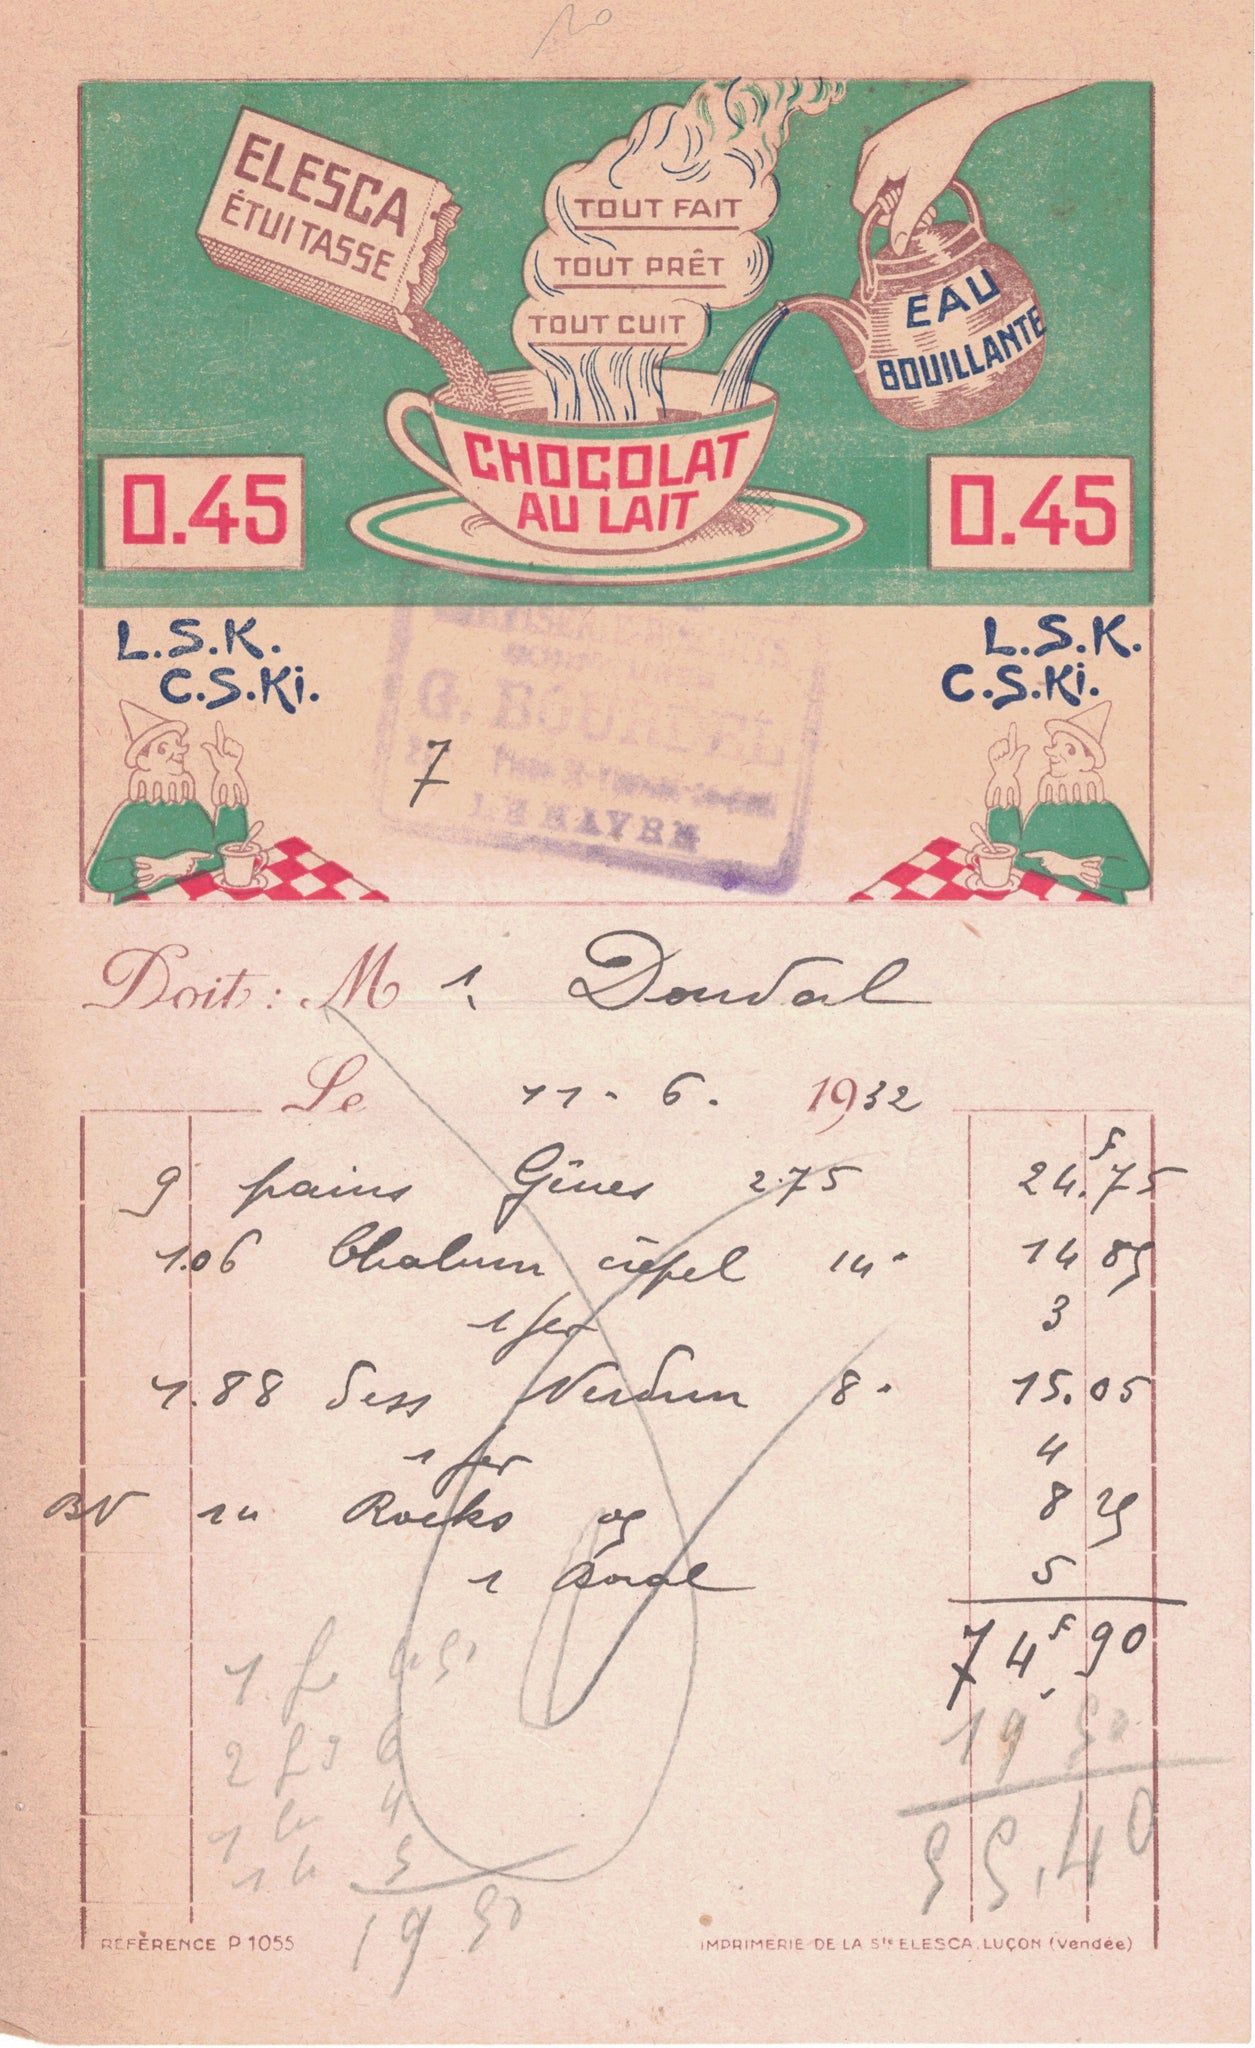 ELESCA
ÉTUI TASSE
TOUT FAIT
TOUT PRÊT
TOUT CUIT
EAU
BOUILLANTE
CHOCOLAT
AU LAIT
0.45
0.45
L.S.K.
C.S.Ki.
L.S.K.
C.S.Ki.
G. BOURDEL
LE HAVRE
7
Doit : M r. Doudal
Le 11. 6. 1932
9 pains Gênes 2.75 24.f75
1.06 14. 14 85
1 fer 3
1.88 dess Verdun 8. 15.05
1 fer 4
BN Rocks 8 25
1 5
74f 90
19 50
55,40
1 4 50
2 6
1 4
1 5
19 50
RÉFÉRENCE P 1055
IMPRIMERIE DE LA Sté ELESCA. LUÇON (Vendée)